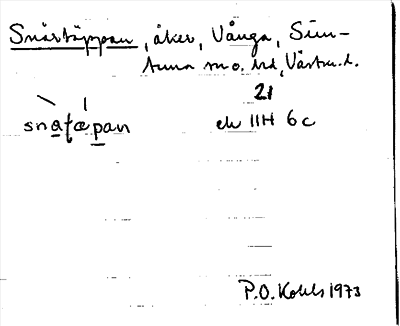 Snårtäppan, åker, Vånga, Sim-
tuna sn o. hd, Västm. l.
21
snatæpan ek 11H 6c
P.O. Kohls 1973